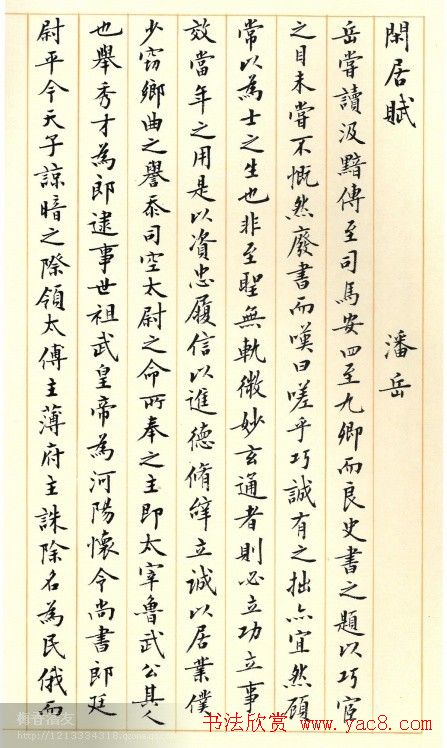 閑居賦　潘岳
岳嘗讀汲黯傳至司馬安四至九卿而良史書之題以巧宦
之目未嘗不慨然廢書而嘆曰嗟乎巧誠有之拙亦宜然顧
常以為士之生也非至聖無軌微妙玄通者則必立功立事
效當年之用是以資忠履信以進德脩辭立誠以居業僕
少竊鄉曲之譽忝司空太尉之命所奉之主即太宰魯武公其人
也舉秀才為郎逮事世祖武皇帝為河陽懷令尚書郎廷
尉平今天子諒暗之際領太傅主薄府主誅除名為民俄而
http://1213334318.qzone.qq
书法欣赏 www.yac8.com